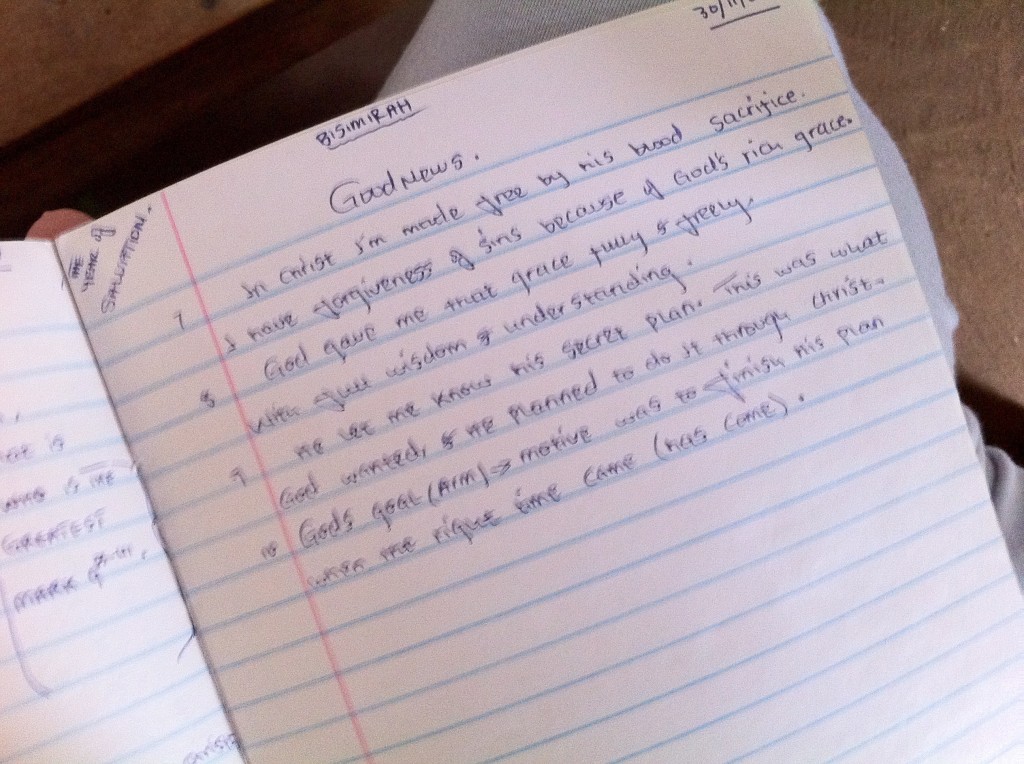 30/11/
BISIMIRAH
Good News.
THE
YEAR of
SALVATION.
7 In Christ I'm made free by his blood sacrifice.
I have forgiveness of sins because of God's rich grace.
8 God gave me that grace fully & freely.
With full wisdom & understanding.
9 He let me know his secret plan. This was what
God wanted, & he planned to do it through Christ.
10 God's goal (Aim) → motive was to finish his plan
when the right time came (has come).
is
is the
GREATEST
MARK of